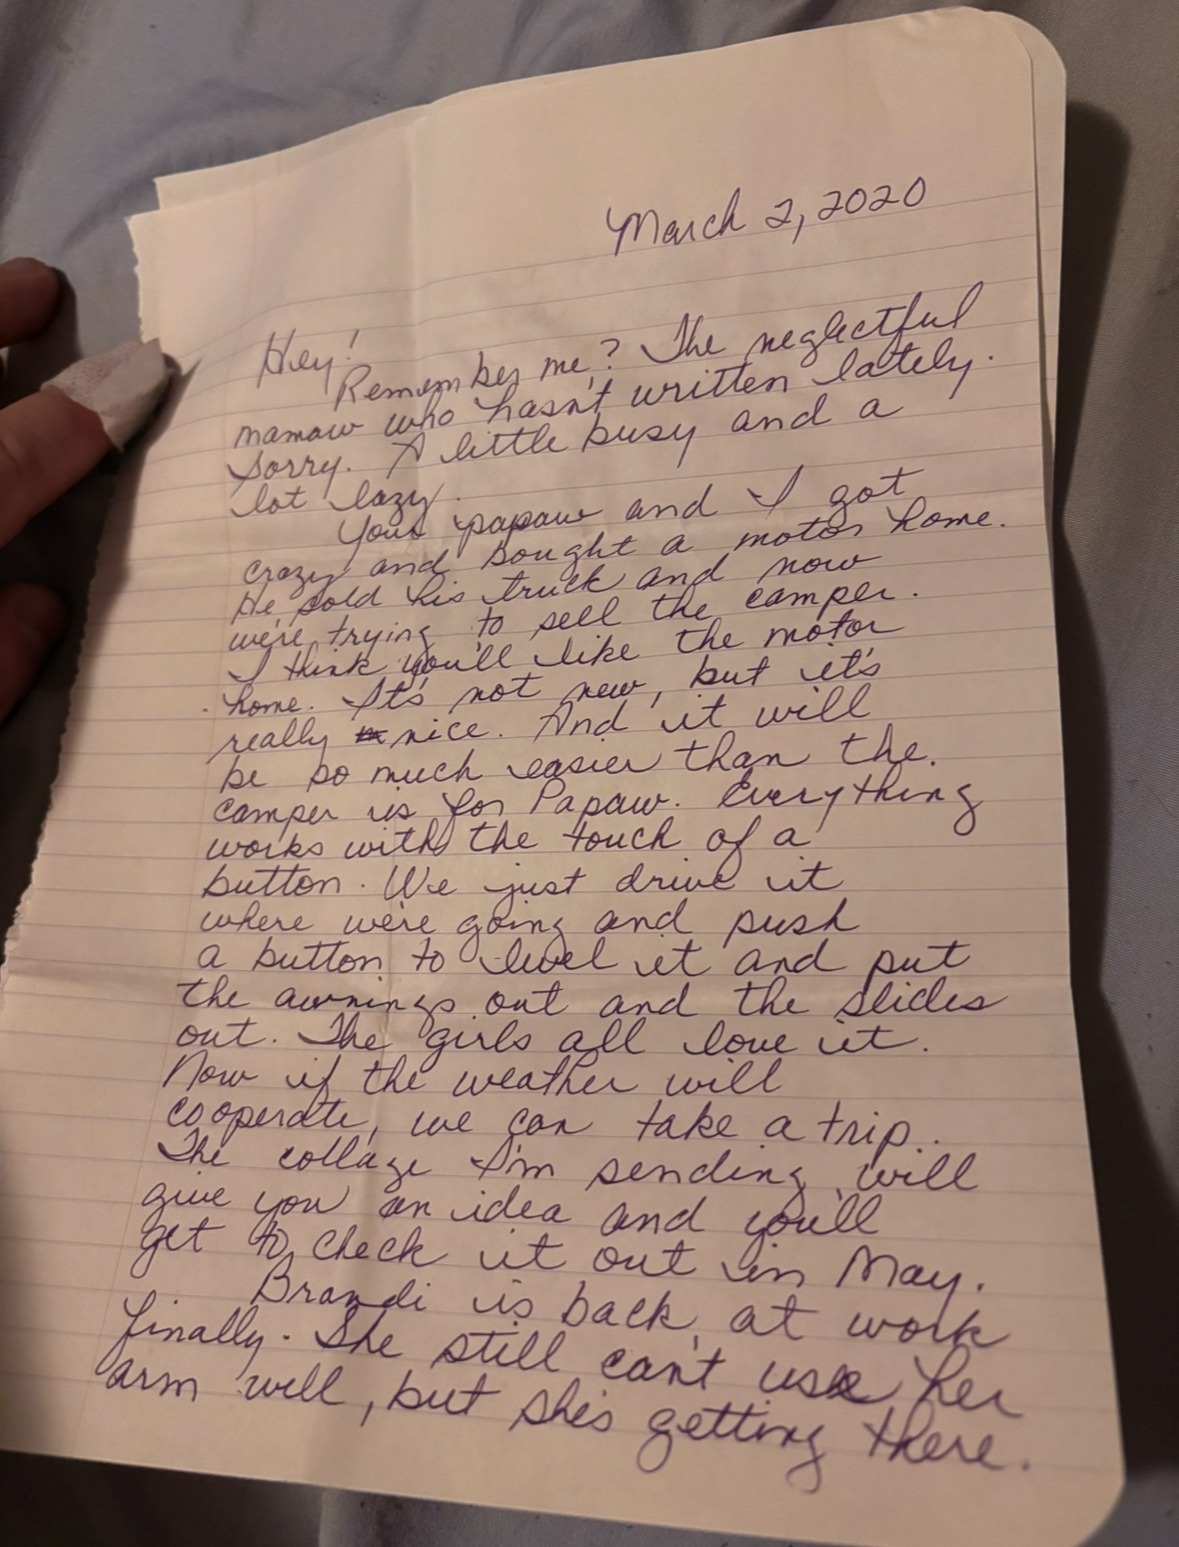 March 2, 2020
Hey!
Remember me? The neglectful
mamaw who hasn't written lately.
Sorry. A little busy and a
lot lazy.
Your papaw and I got
crazy and bought a motor home.
He sold his truck and now
we're trying to sell the camper.
I think you'll like the motor
home. It's not new, but it's
really nice. And it will
be so much easier than the
camper is for Papaw. Everything
works with the touch of a
button. We just drive it
where we're going and push
a button to level it and put
the awnings out and the slides
out. The girls all love it.
Now if the weather will
cooperate, we can take a trip.
The collage I'm sending will
give you an idea and you'll
get to check it out in May.
Brandi is back at work
finally. She still can't use her
arm well, but she's getting there.